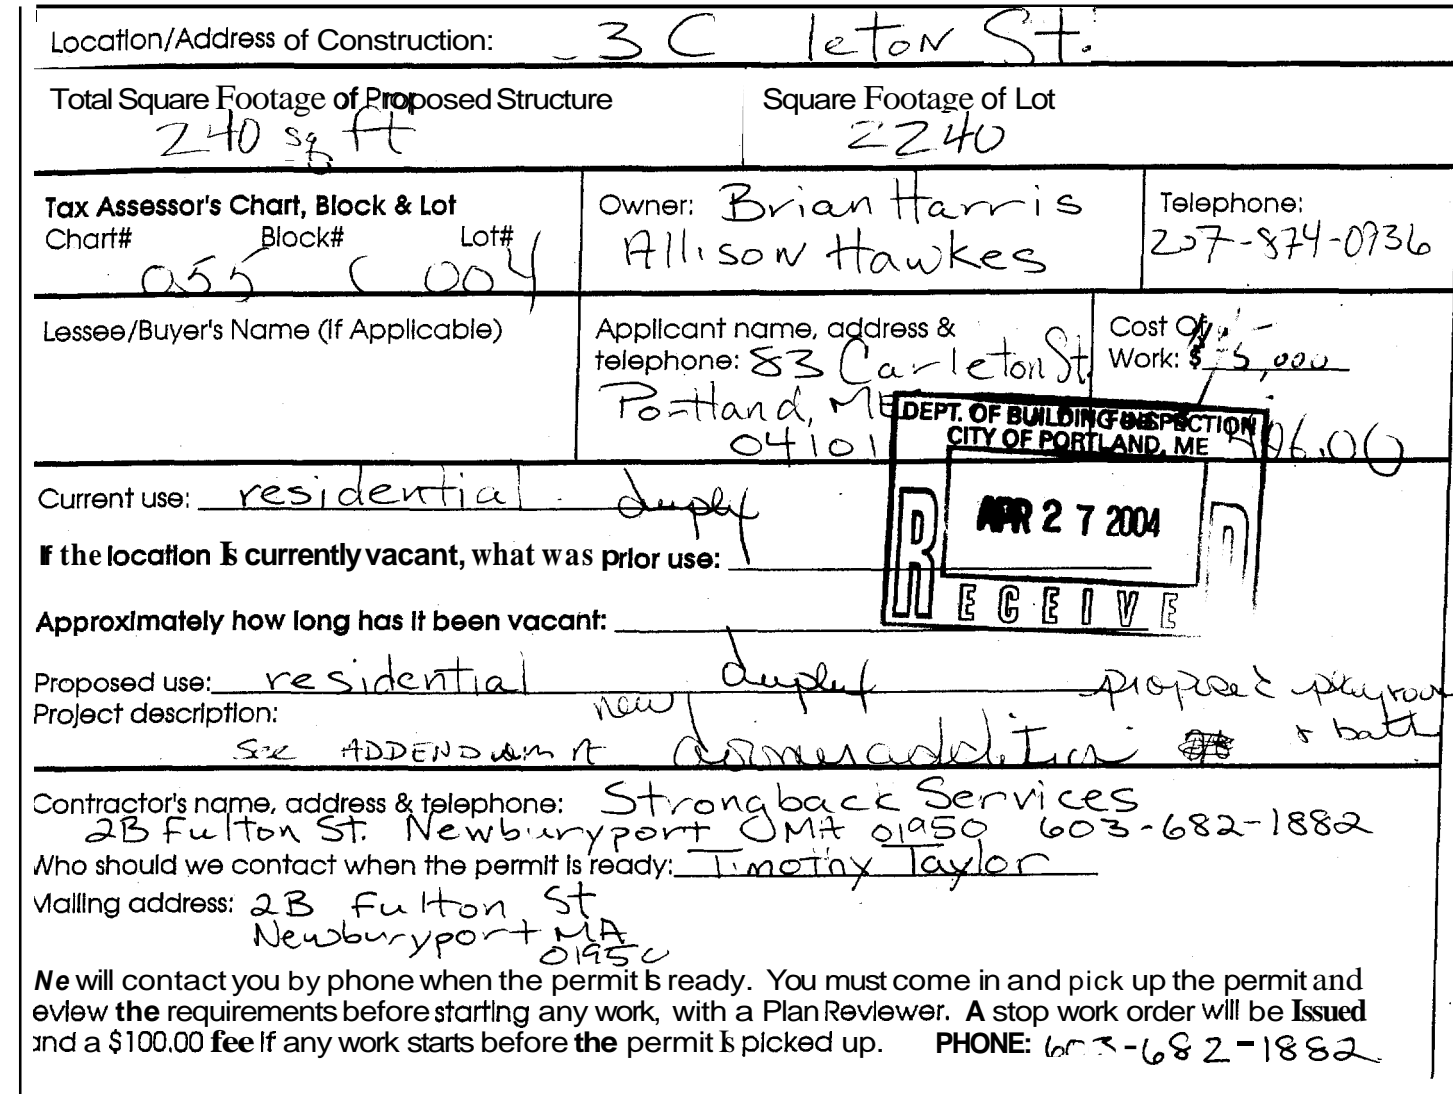 Location/Address of Construction: 3 C leton St.
Total Square Footage of Proposed Structure
240 sq ft
Square Footage of Lot
2240
Tax Assessor's Chart, Block & Lot
Chart# Block# Lot#
055 C 004
Owner: Brian Harris
Allison Hawkes
Telephone:
207-874-0736
Lessee/Buyer's Name (If Applicable)
Applicant name, address &
telephone: 83 Carleton St.
Portland, ME
04101
Cost Of
Work: $ 5,000
DEPT. OF BUILDING INSPECTION
CITY OF PORTLAND, ME
APR 27 2004
RECEIVED
Current use: residential duplex
If the location Is currently vacant, what was prior use:
Approximately how long has it been vacant:
Proposed use: residential duplex propose playroom
& bath
Project description: new
See ADDENDUM A dormer addition
Contractor's name, address & telephone: Strongback Services
2B Fulton St. Newburyport MA 01950 603-682-1882
Who should we contact when the permit is ready: Timothy Taylor
Mailing address: 2B Fulton St
Newburyport MA
01950
We will contact you by phone when the permit is ready. You must come in and pick up the permit and
eview the requirements before starting any work, with a Plan Reviewer. A stop work order will be Issued
and a $100.00 fee if any work starts before the permit is picked up. PHONE: 603-682-1882